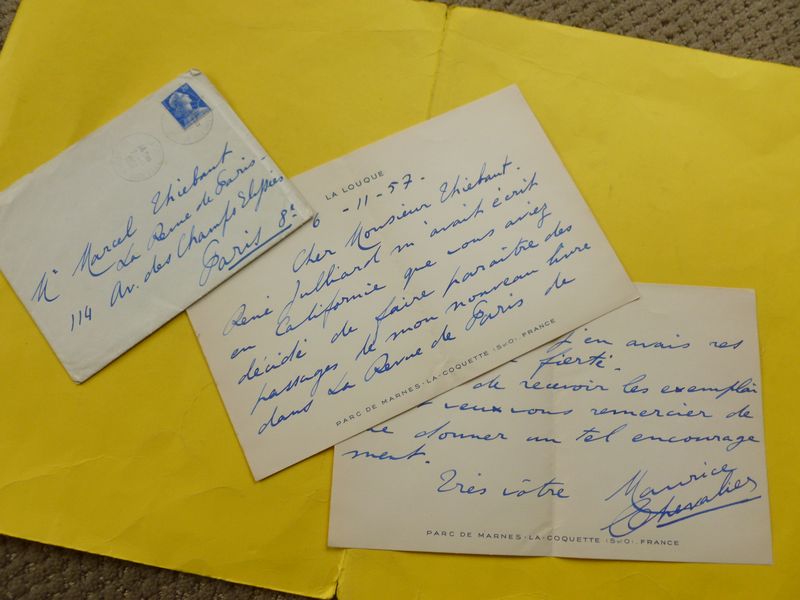 Mr Marcel Thiebaut
La Revue de Paris-
114 Av. des Champs Elysées
Paris 8e
LA LOUQUE
6 -11-57.
Cher Monsieur Thiebaut.
René Julliard m'avait écrit
en Californie que vous aviez
décidé de faire paraître des
passages de mon nouveau livre
dans La Revue de Paris de
PARC DE MARNES-LA-COQUETTE (S&O). FRANCE
j'en avais res
fierté.
de recevoir les exemplai
veux vous remercier de
donner un tel encourage
ment.
Très vôtre
Maurice
Chevalier
PARC DE MARNES-LA-COQUETTE (S&O). FRANCE